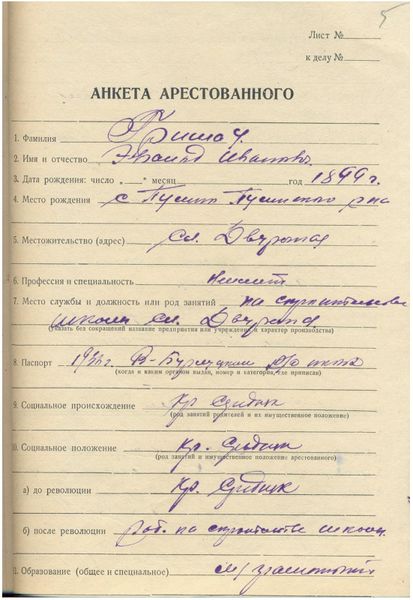 5
Лист №
к делу №
АНКЕТА АРЕСТОВАННОГО
1. Фамилия
2. Имя и отчество Иванович
3. Дата рождения: число „ “ месяц год 1899 г.
4. Место рождения с
5. Местожительство (адрес)
6. Профессия и специальность
7. Место службы и должность или род занятий на строительстве
школы
(указать без сокращений название предприятия или учреждения и характер производства)
8. Паспорт 1936 г.
(когда и каким органом выдан, номер и категория, где приписан)
9. Социальное происхождение Кр. Средняк
(род занятий родителей и их имущественное положение)
10. Социальное положение Кр. Средняк
(род занятий и имущественное положение арестованного)
а) до революции Кр. Средняк
б) после революции раб. на строительстве школы
. Образование (общее и специальное) м/грамотный